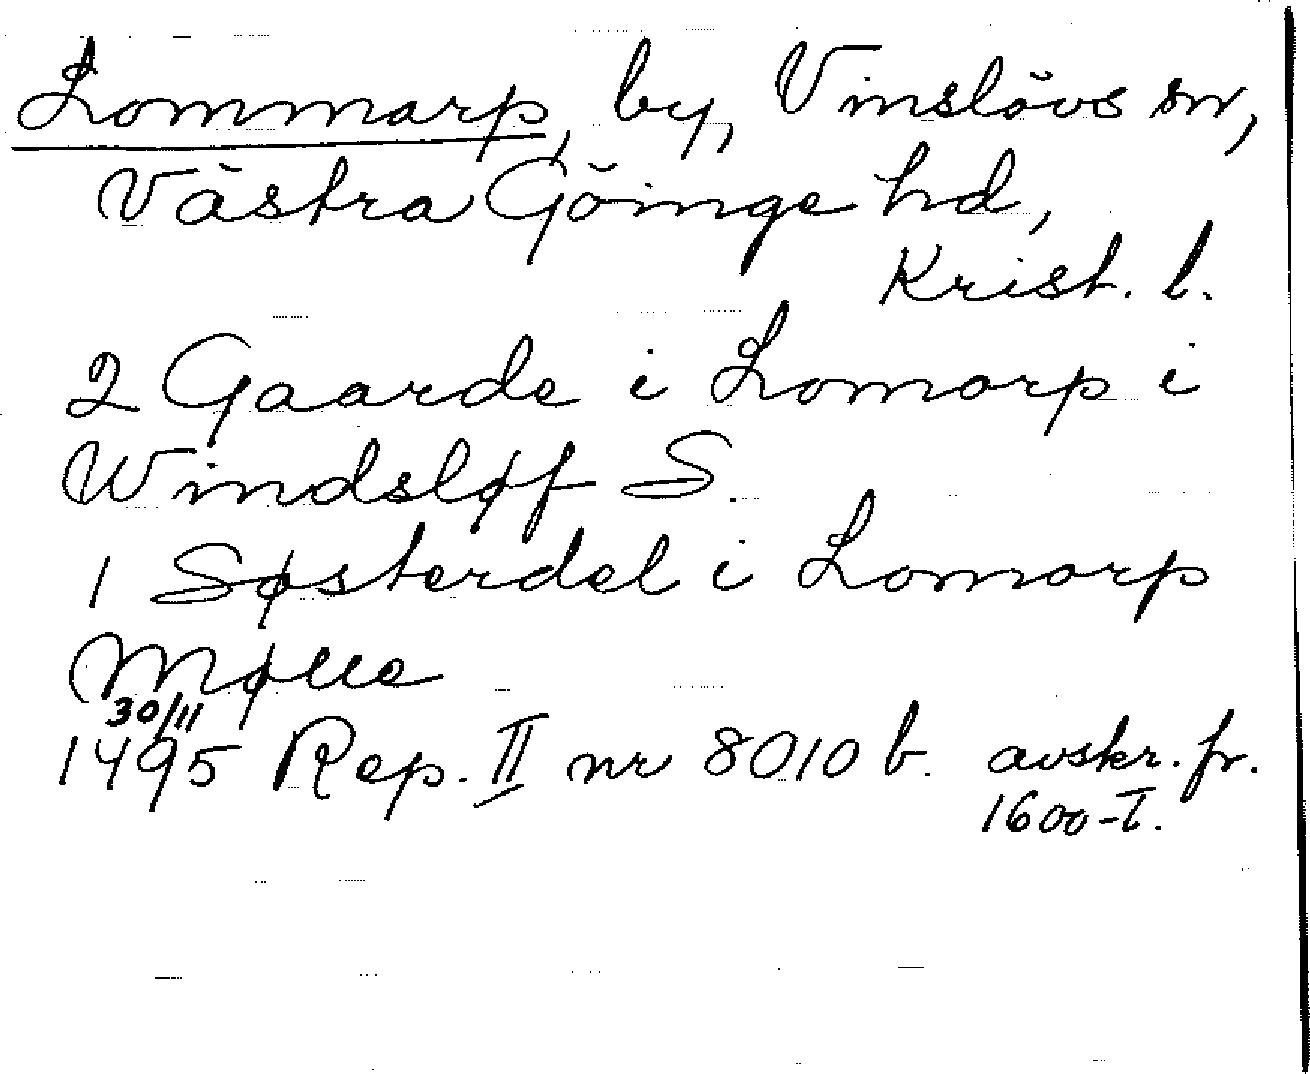 Lommarp, by, Vinslövs sn,
Västra Göinge hd,
Krist. l.
2 Gaarde i Lomorp i
Windsløf S.
1 Søsterdel i Lomorp
Mølle
30/11
1495 Rep. II nr 8010 b. avskr. fr.
1600-T.